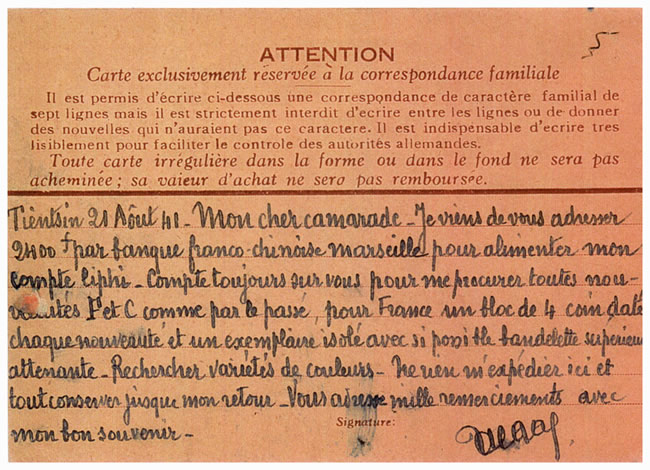 5
ATTENTION
Carte exclusivement réservée à la correspondance familiale
Il est permis d'écrire ci-dessous une correspondance de caractère familial de
sept lignes mais il est strictement interdit d'ecrire entre les lignes ou de donner
des nouvelles qui n'auraient pas ce caractere. Il est indispensable d'ecrire tres
lisiblement pour faciliter le controle des autorités allemandes.
Toute carte irrégulière dans la forme ou dans le fond ne sera pas
acheminée ; sa valeur d'achat ne sera pas remboursée.
Tientsin 21 Aôut 41 - Mon cher camarade - Je viens de vous adresser
2400 f par banque franco-chinoise marseille pour alimenter mon
compte Liphi - Compte toujours sur vous pour me procurer toutes nou-
veautés P et C comme par le passé, pour France un bloc de 4 coin daté
chaque nouveauté et un exemplaire isolé avec si possible bandelette supérieure
attenante - Rechercher variétés de couleurs - Ne rien m'expédier ici et
tout conserver jusque mon retour - Vous adresse mille remerciements avec
mon bon souvenir -
Signature: